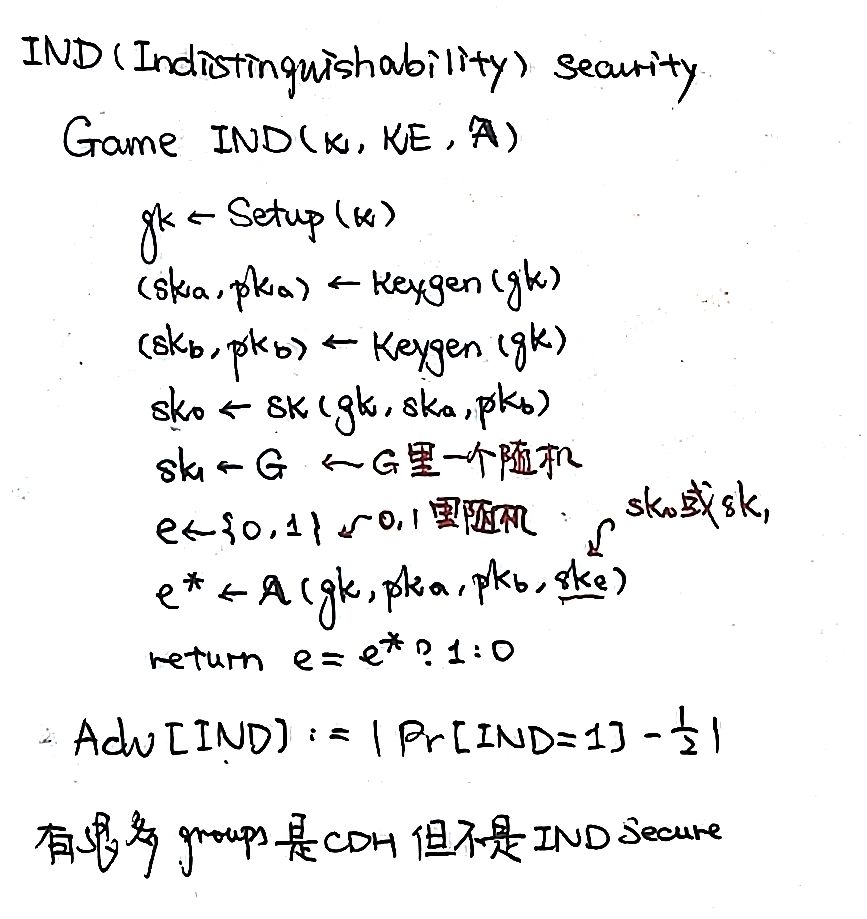 IND (Indistinguishability) security
Game IND(κ, KE, A)
gk ← Setup (κ)
(ska, pka) ← Keygen (gk)
(skb, pkb) ← Keygen (gk)
sk0 ← SK (gk, ska, pkb)
sk1 ← G ← G里一个随机
e ← {0,1} ↙ 0,1里随机 sk0或sk1
e* ← A (gk, pka, pkb, ske)
return e = e* ? 1 : 0
Adv [IND] := | Pr [IND=1] - 1/2 |
有很多 groups 是 CDH 但不是 IND Secure